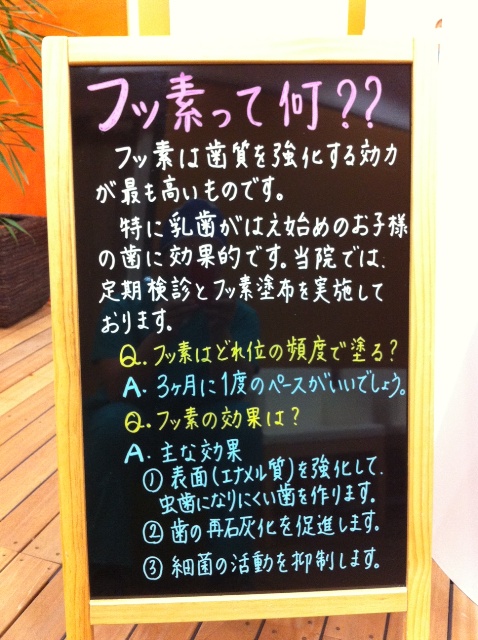 フッ素って何??
フッ素は歯質を強化する効力
が最も高いものです。
特に乳歯がはえ始めのお子様
の歯に効果的です。当院では、
定期検診とフッ素塗布を実施して
おります。
Q.フッ素はどれ位の頻度で塗る?
A.3ヶ月に1度のペースがいいでしょう。
Q.フッ素の効果は?
A.主な効果
①表面(エナメル質)を強化して、
虫歯になりにくい歯を作ります。
②歯の再石灰化を促進します。
③細菌の活動を抑制します。